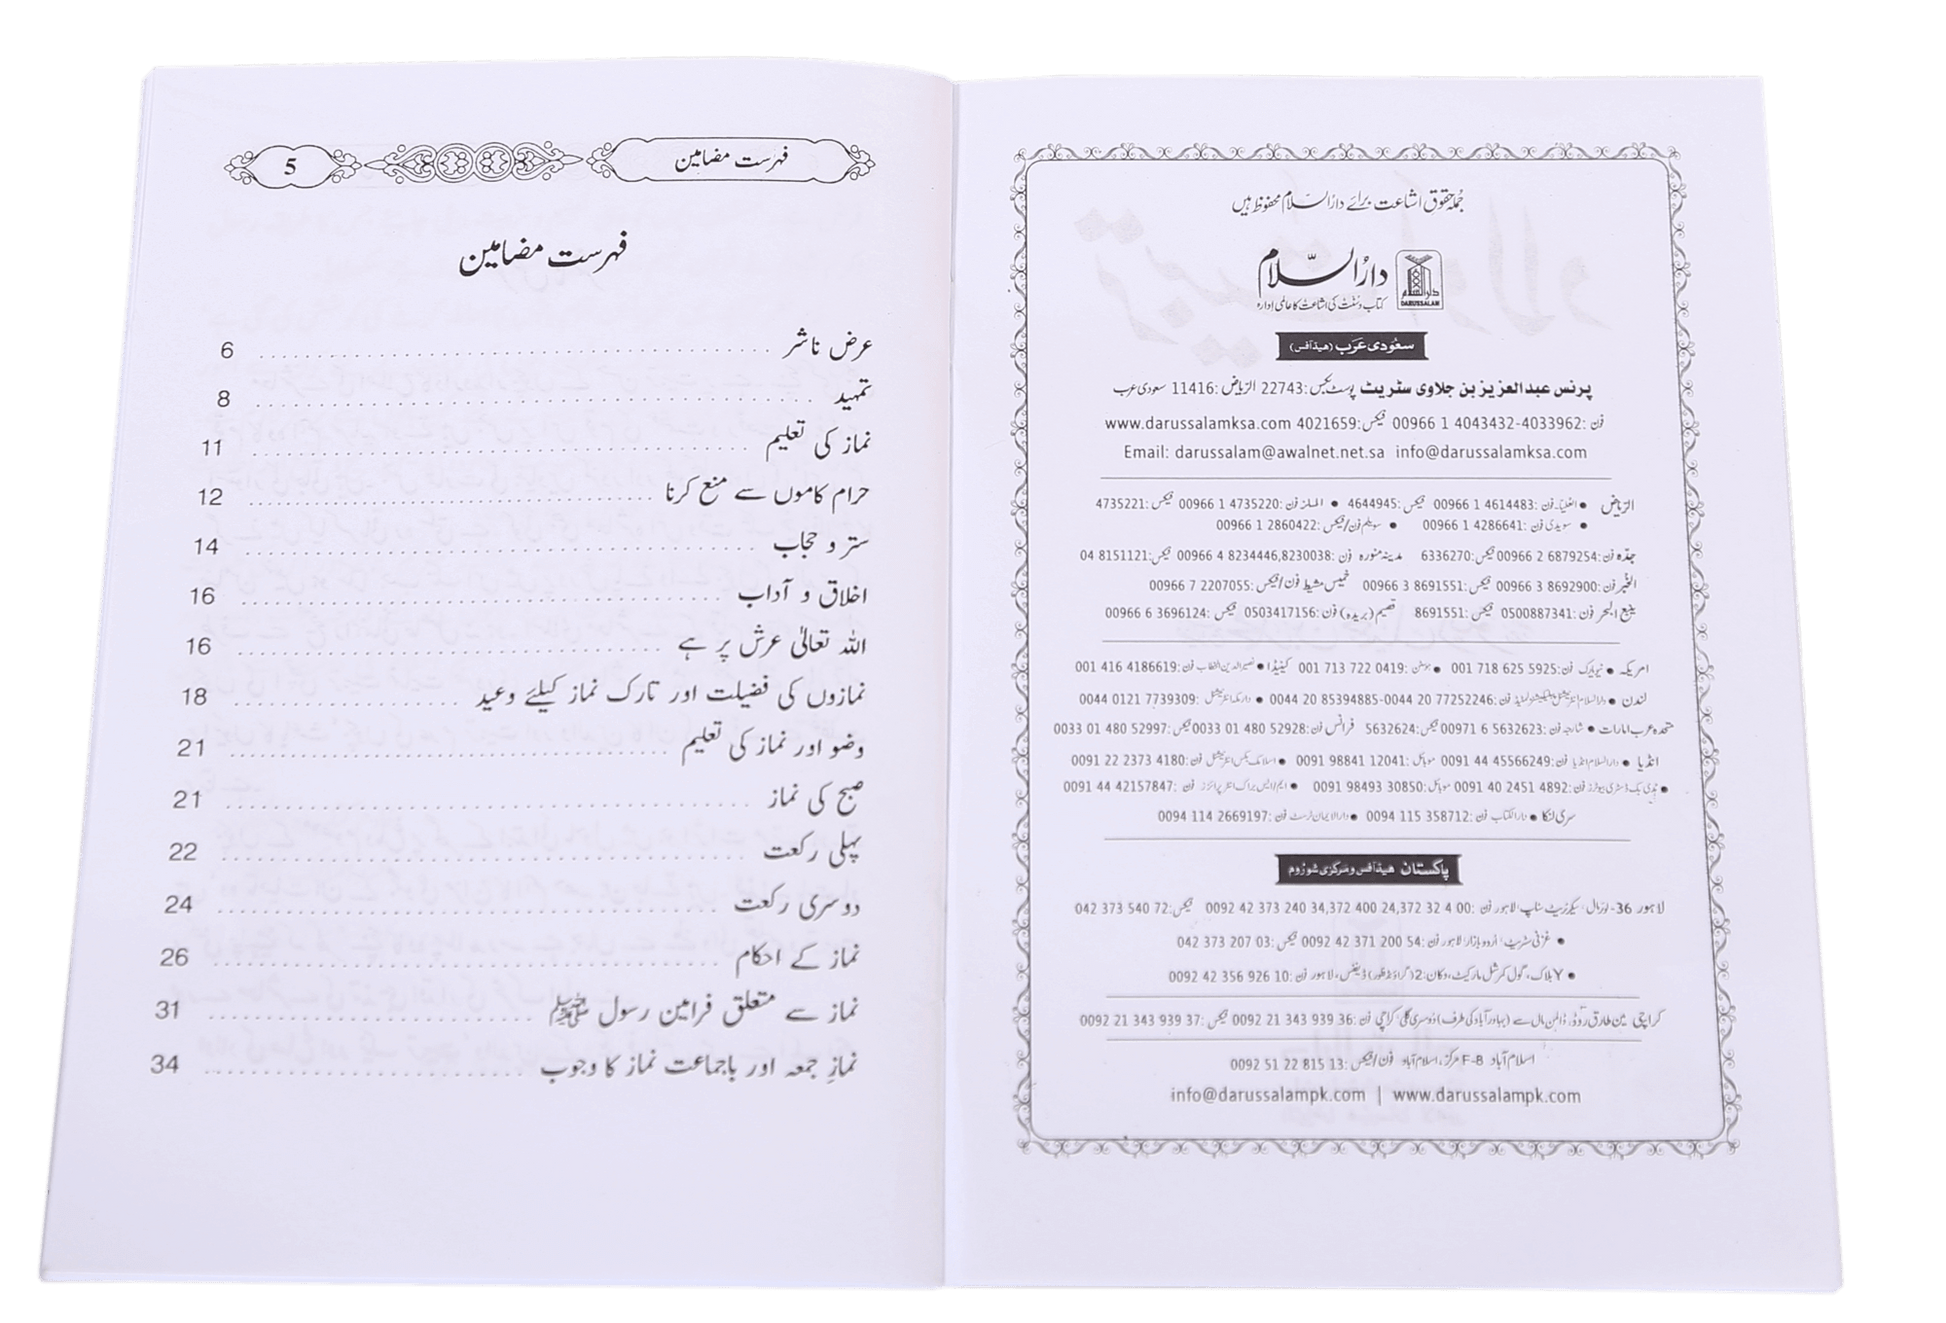 جملہ حقوق اشاعت برائے دارُالسّلام محفوظ ہیں
دارُالسّلام
DARUSSALAM
کتاب و سنّت کی اشاعت کا عالمی ادارہ
سعودی عرب (هيڈ آفس)
پرنس عبدالعزيز بن جلاوی سٹریٹ پوسٹ بکس: 22743 الریاض: 11416 سعودی عرب
فون: 00966 1 4043432-4033962 فیکس: 4021659 www.darussalamksa.com
Email: darussalam@awalnet.net.sa info@darussalamksa.com
الریاض • العلیا۔ فون: 00966 1 4614483 فیکس: 4644945 • الملز فون: 00966 1 4735220 فیکس: 4735221
• سویدی فون: 00966 1 4286641 • سویلم فون/فیکس: 00966 1 2860422
جدّہ فون: 00966 2 6879254 فیکس: 6336270 مدینہ منورہ فون: 00966 4 8234446,8230038 فیکس: 04 8151121
الخُبر فون: 00966 3 8692900 فیکس: 00966 3 8691551 خمیس مشیط فون/فیکس: 00966 7 2207055
ینبع البحر فون: 0500887341 فیکس: 8691551 قصیم (بریدہ) فون: 0503417156 فیکس: 00966 6 3696124
امریکہ • نیویارک فون: 001 718 625 5925 • ہیوسٹن: 001 713 722 0419 کینیڈا • نصیرالدین الخطاب فون: 001 416 4186619
لندن • دارالسلام انٹرنیشنل پبلیکیشنز لمیٹڈ فون: 0044 20 77252246-0044 20 85394885 • دارمکہ انٹرنیشنل: 0044 0121 7739309
متحدہ عرب امارات • شارجہ فون: 00971 6 5632623 فیکس: 5632624 فرانس فون: 0033 01 480 52928 فیکس: 0033 01 480 52997
انڈیا • دارالسلام انڈیا فون: 0091 44 45566249 موبائل: 0091 98841 12041 • اسلامک بکس انٹرنیشنل فون: 0091 22 2373 4180
• ہُدیٰ بک ڈسٹری بیوٹرز فون: 0091 40 2451 4892 موبائل: 0091 98493 30850 • ایم ایس براک انٹر پرائزز فون: 0091 44 42157847
سری لنکا • دارالکتاب فون: 0094 115 358712 • دارالایمان ٹرسٹ فون: 0094 114 2669197
پاکستان هيڈ آفس و مرکزی شوروم
لاہور 36- لوئر مال، سیکرٹریٹ سٹاپ، لاہور فون: 0092 42 373 240 34,372 400 24,372 32 4 00 فیکس: 042 373 540 72
• غزنی سٹریٹ، اُردو بازار، لاہور فون: 0092 42 371 200 54 فیکس: 042 373 207 03
• Y بلاک، گول کمرشل مارکیٹ، دکان: 2 (گراؤنڈ فلور) ڈیفنس، لاہور فون: 0092 42 356 926 10
کراچی مین طارق روڈ، ڈالمن مال سے (بہادر آباد کی طرف) دُوسری گلی کراچی فون: 0092 21 343 939 36 فیکس: 0092 21 343 939 37
اسلام آباد F-8 مرکز، اسلام آباد فون/فیکس: 0092 51 22 815 13
info@darussalampk.com | www.darussalampk.com
فہرست مضامین 5
فہرست مضامین
عرض ناشر 6
تمہید 8
نماز کی تعلیم 11
حرام کاموں سے منع کرنا 12
ستر و حجاب 14
اخلاق و آداب 16
اللہ تعالیٰ عرش پر ہے 16
نمازوں کی فضیلت اور تارک نماز کیلئے وعید 18
وضو اور نماز کی تعلیم 21
صبح کی نماز 21
پہلی رکعت 22
دوسری رکعت 24
نماز کے احکام 26
نماز سے متعلق فرامین رسول ﷺ 31
نمازِ جمعہ اور باجماعت نماز کا وجوب 34